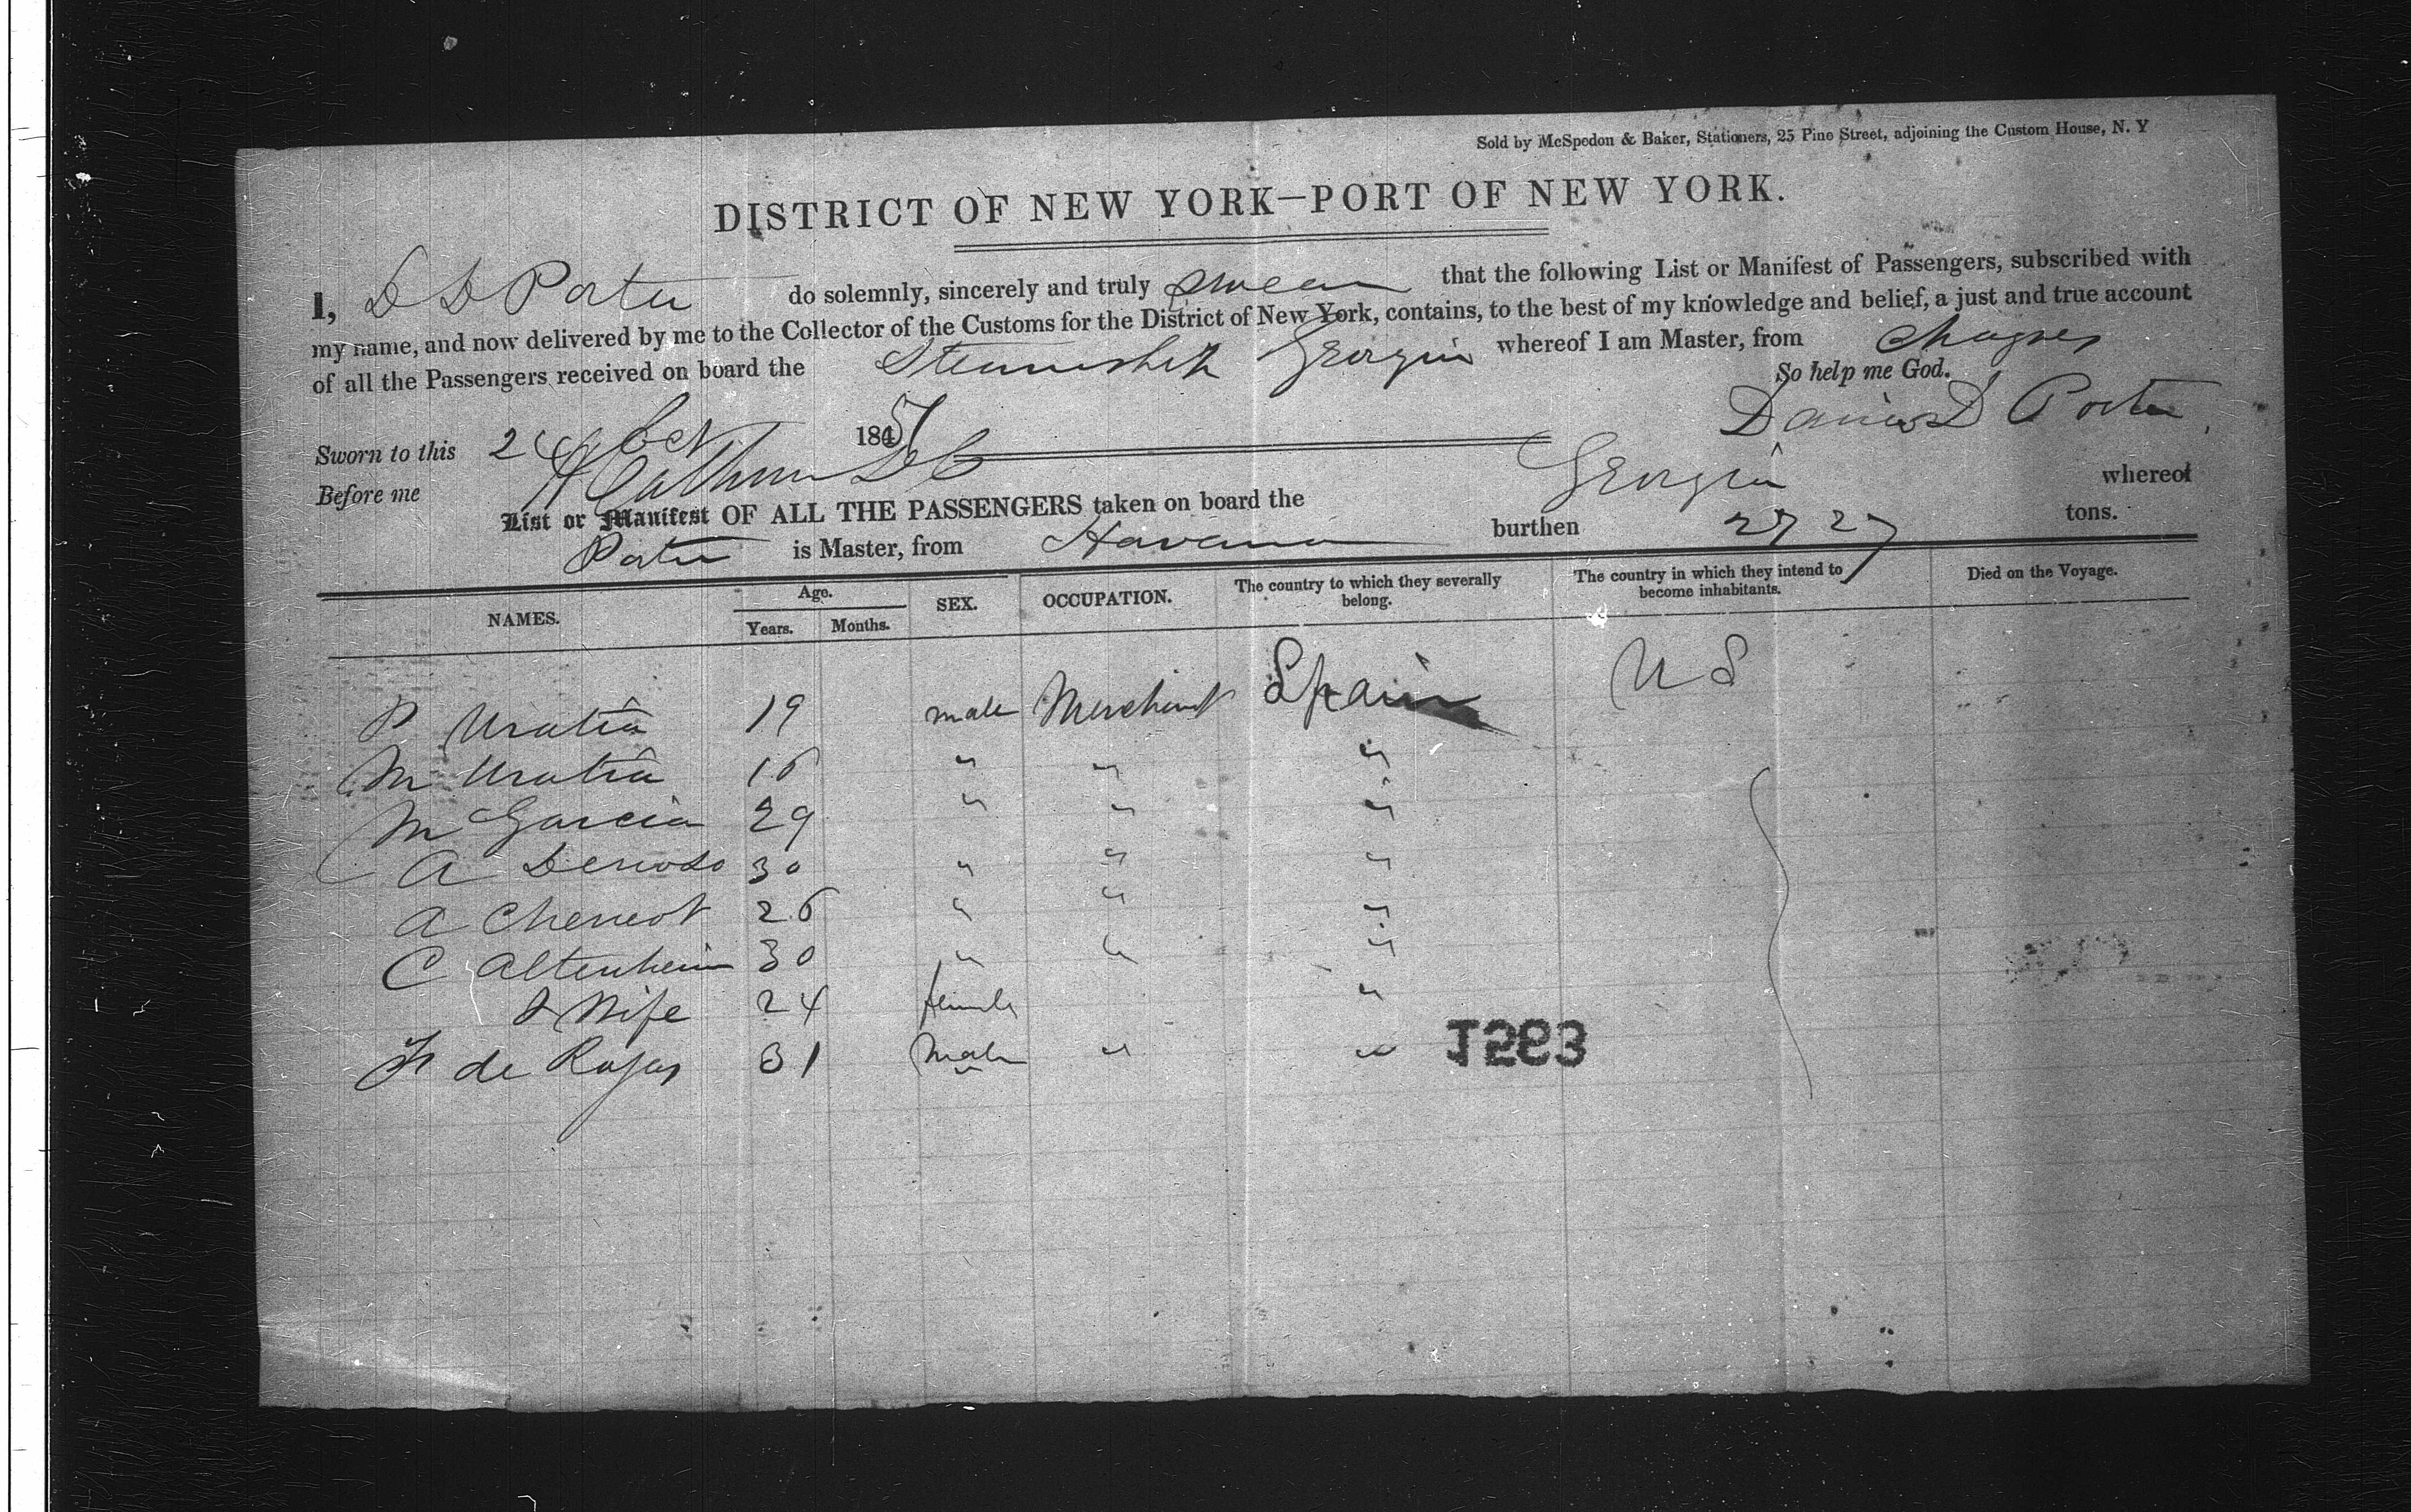 Sold by McSpedon & Baker, Stationers, 25 Pine Street, adjoining the Custom House, N. Y
DISTRICT OF NEW YORK—PORT OF NEW YORK.
I, D D Porter do solemnly, sincerely and truly swear that the following List or Manifest of Passengers, subscribed with
my name, and now delivered by me to the Collector of the Customs for the District of New York, contains, to the best of my knowledge and belief, a just and true account
of all the Passengers received on board the Steamship Georgia whereof I am Master, from Chagres
So help me God.
David D Porter
Sworn to this 24 Oct 1851
Before me
List or Manifest OF ALL THE PASSENGERS taken on board the Georgia whereof
Porter is Master, from Havana burthen 2727 tons.
NAMES. Age. Years. Months. SEX. OCCUPATION. The country to which they severally belong. The country in which they intend to become inhabitants. Died on the Voyage.
P Urutia 19 male Merchant Spain U S
M Urutia 16 " " "
M Garcia 29 " " "
A 30 " " "
A 26 " " "
C Altenheim 30 " " "
& Wife 24 female "
de Rojas 31 Male " "
1283